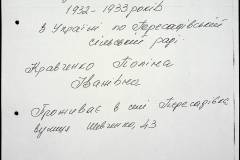 1932-1933 років
в Україні по Пересадівській
сільській раді
Кравченко Поліна
Іванівна
Проживає в селі Пересадівка
вулиця Шевченко, 43